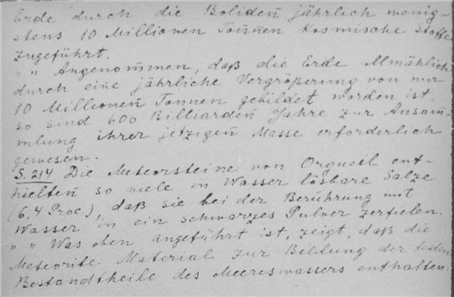 Erde durch die Boliden jährlich wenig-
stens 10 Millionen Tonnen kosmische Stoffe
zugeführt.
" " Angenommen, daß die Erde allmählich
durch eine jährliche Vergrößerung von nur
10 Millionen Tonnen gebildet worden ist,
so sind 600 Billiarden Jahre zur Ansam-
mlung ihrer jetzigen Masse erforderlich
gewesen.
S. 214 Die Meteorsteine von Orgueil ent-
hielten so viele in Wasser lösbare Salze
(6,4 Proc), daß sie bei der Berührung mit
Wasser in ein schwarzes Pulver zerfielen.
" " Was oben angeführt ist, zeigt, daß die
Meteorite Material zur Bildung der festen
Bestandtheile des Meereswassers enthalten.